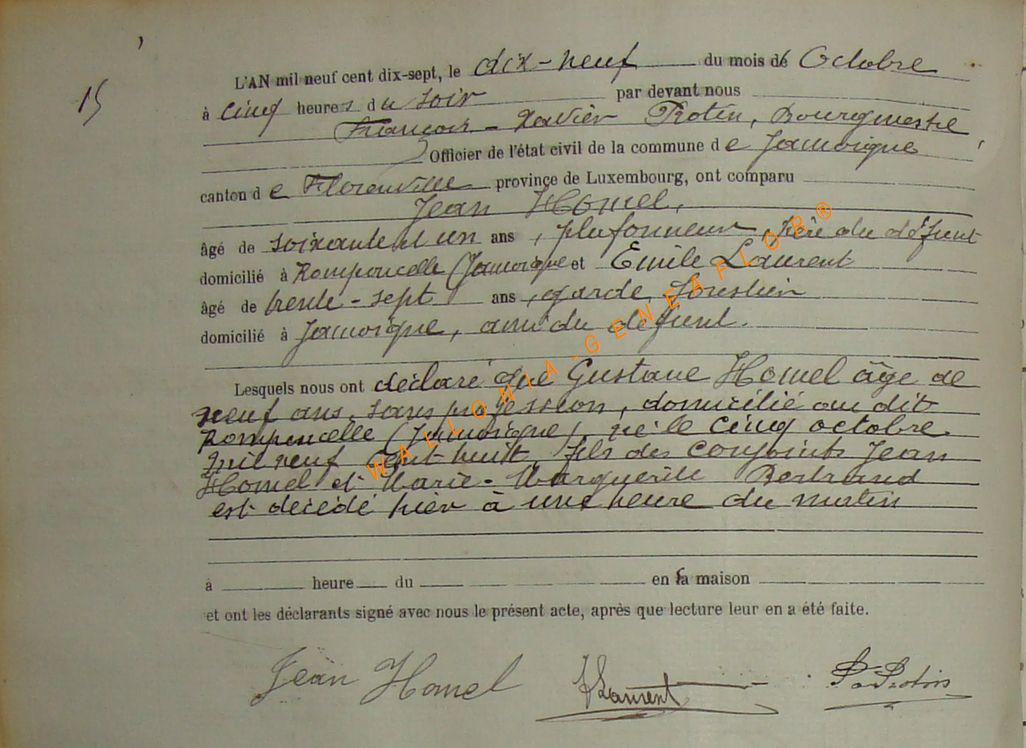 15
L'AN mil neuf cent dix-sept, le dix-neuf du mois de Octobre
à cinq heures du soir par devant nous
François-Xavier Rotin, Bourgmestre
Officier de l'état civil de la commune de Jamoigne
canton de Florenville province de Luxembourg, ont comparu
Jean Homel,
âgé de soixante et un ans, plafonneur, père du défunt
domicilié à Romponcelle (Jamoigne et Emile Laurent
âgé de trente-sept ans, garde forestier
domicilié à Jamoigne, ami du défunt.
Lesquels nous ont déclaré que Gustave Homel âgé de
neuf ans, sans profession, domicilié au dit
Romponcelle (Jamoigne) né le cinq octobre
mil neuf cent huit, fils des conjoints Jean
Homel et Marie-Marguerite Bertrand
est décédé hier à une heure du matin
à heure du en la maison
et ont les déclarants signé avec nous le présent acte, après que lecture leur en a été faite.
Jean Homel Laurent
WALLONIA-GENEALOR®